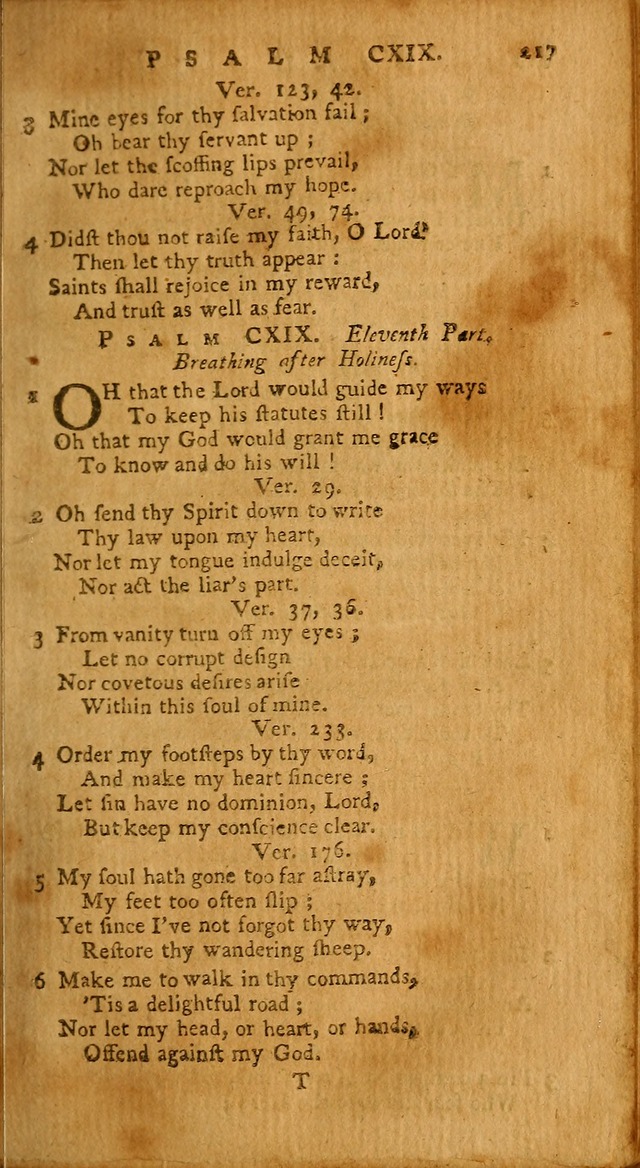 PSALM CXIX. 217
Ver. 123, 42.
3 Mine eyes for thy ſalvation fail;
Oh bear thy ſervant up;
Nor let the ſcoffing lips prevail,
Who dare reproach my hope.
Ver. 49, 74.
4 Didſt thou not raiſe my faith, O Lord?
Then let thy truth appear:
Saints ſhall rejoice in my reward,
And truſt as well as fear.
PSALM CXIX. Eleventh Part.
Breathing after Holineſs.
1 OH that the Lord would guide my ways
To keep his ſtatutes ſtill!
Oh that my God would grant me grace
To know and do his will!
Ver. 29.
2 Oh ſend thy Spirit down to write
Thy law upon my heart,
Nor let my tongue indulge deceit,
Nor act the liar's part.
Ver. 37, 36.
3 From vanity turn off my eyes;
Let no corrupt deſign
Nor covetous deſires ariſe
Within this ſoul of mine.
Ver. 233.
4 Order my footſteps by thy word,
And make my heart ſincere;
Let ſin have no dominion, Lord,
But keep my conſcience clear.
Ver. 176.
5 My ſoul hath gone too far aſtray,
My feet too often ſlip;
Yet ſince I've not forgot thy way,
Reſtore thy wandering ſheep.
6 Make me to walk in thy commands,
'Tis a delightful road;
Nor let my head, or heart, or hands,
Offend againſt my God.
T